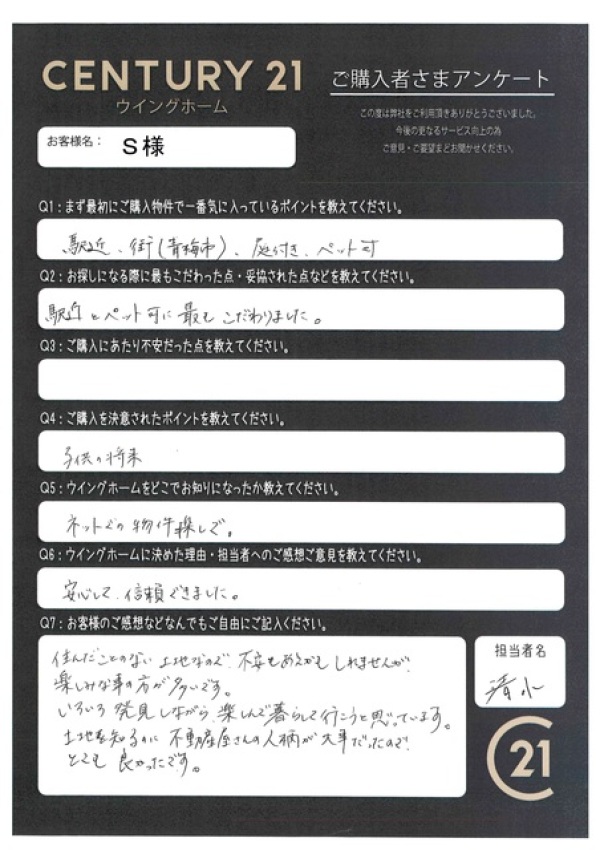 CENTURY 21
ウイングホーム
ご購入者さまアンケート
この度は弊社をご利用頂きありがとうございました。
今後の更なるサービス向上の為
ご意見・ご要望までお聞かせください。
お客様名： S様
Q1：まず最初にご購入物件で一番気に入っているポイントを教えてください。
駅近、街(青梅市)、庭付き、ペット可
Q2：お探しになる際に最もこだわった点・妥協された点などを教えてください。
駅近とペット可に最もこだわりました。
Q3：ご購入にあたり不安だった点を教えてください。
Q4：ご購入を決意されたポイントを教えてください。
子供の将来
Q5：ウイングホームをどこでお知りになったか教えてください。
ネットでの物件探しで。
Q6：ウイングホームに決めた理由・担当者へのご感想ご意見を教えてください。
安心して、信頼できました。
Q7：お客様のご感想などなんでもご自由にご記入ください。
住んだことのない土地なので、不安もあるかもしれませんが、
楽しみな事の方が多いです。
いろいろ発見しながら、楽しんで暮らして行こうと思っています。
土地を知るのに不動産屋さんの人柄が大事だったので
とても良かったです。
担当者名
清水
C21